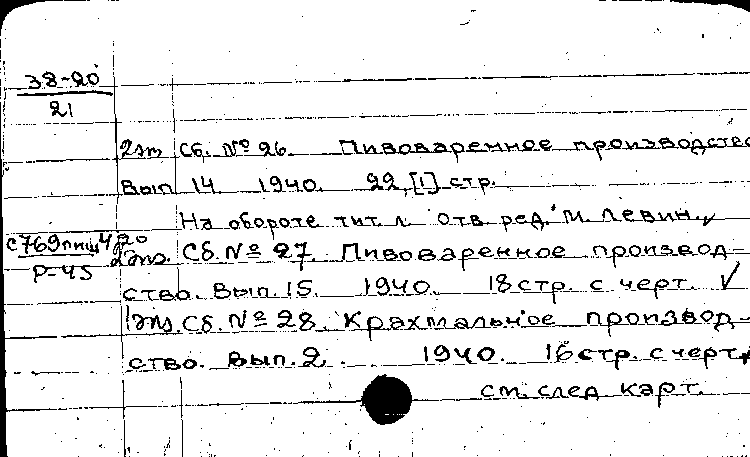 38-20
21
2эт Сб. № 26. Пивоваренное производство
Вып 14 1940. 22, [1] стр.
На обороте тит. л. Отв. ред. М. Левин.
с769пищ 4/20
Р-45
2эт. Сб. № 27. Пивоваренное производ-
ство. Вып. 15. 1940. 18 стр. с черт.
1эт. Сб. № 28. Крахмальное производ-
ство. Вып. 2. 1940. 16 стр. с черт.
см. след карт.